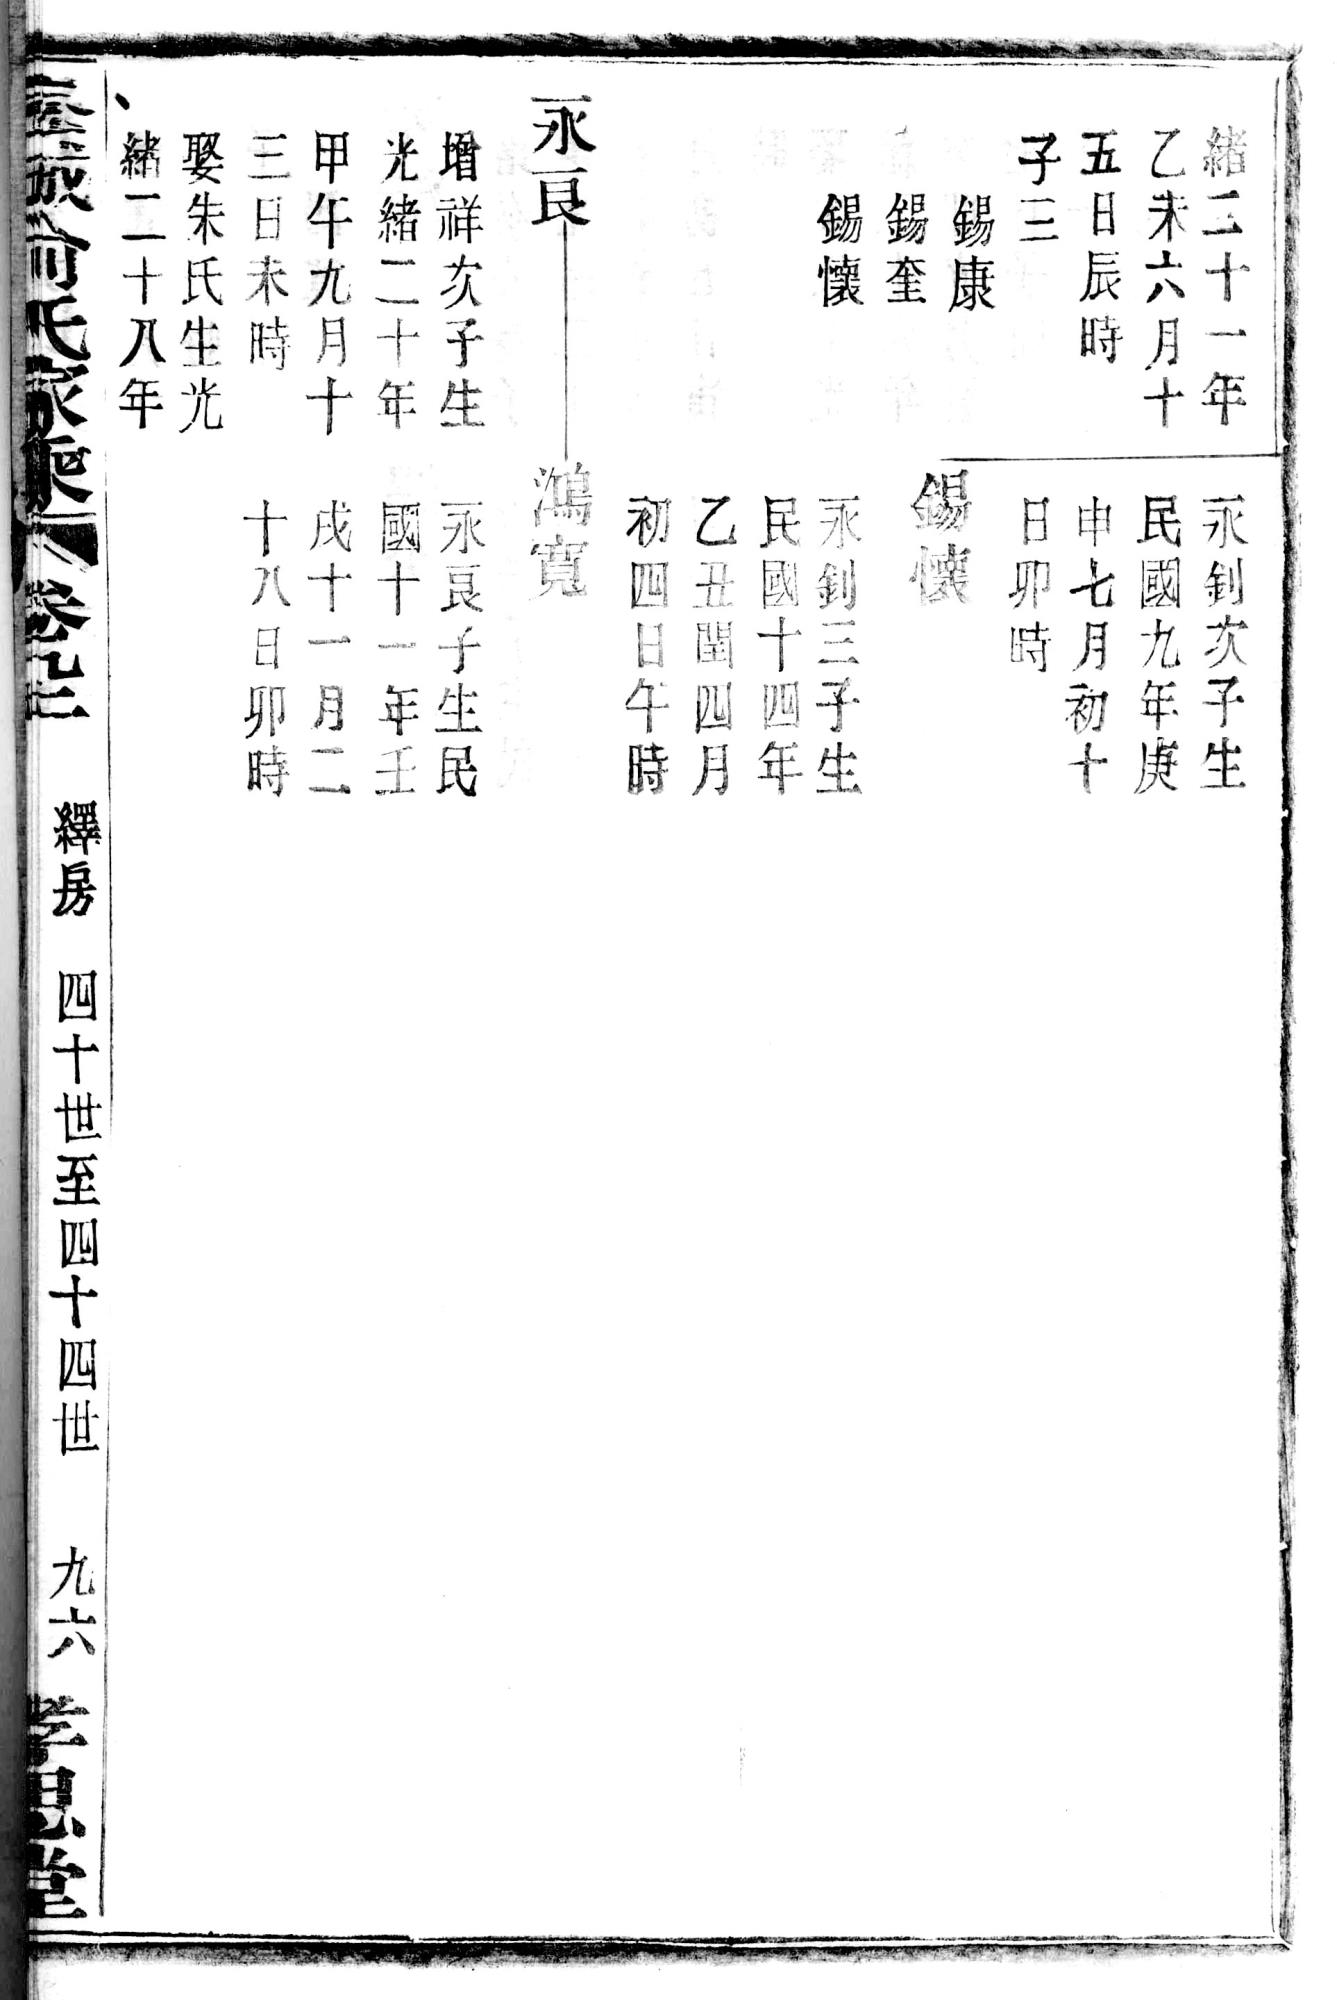 緒二十一年
乙未六月十
五日辰時
子三
錫康
錫奎
錫懷
永釗次子生
民國九年庚
申七月初十
日卯時
錫懷
永釗三子生
民國十四年
乙丑閏四月
初四日午時
永艮
增祥次子生
光緒二十年
甲午九月十
三日未時
娶朱氏生光
緒二十八年
鴻寬
永艮子生民
國十一年壬
戌十一月二
十八日卯時
俞氏家乘
卷九二
繹房
四十世至四十四世
九六
孝思堂